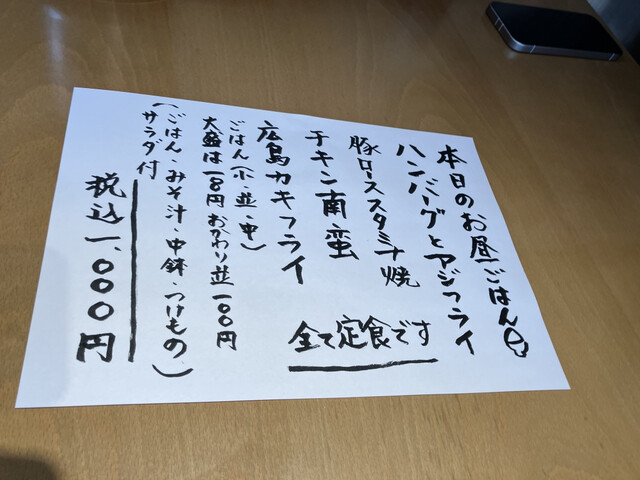 本日のお昼ごはん
ハンバーグとアジフライ
豚ローススタミナ焼
チキン南蛮
広島カキフライ
全て定食です
ごはん(小・並・中)
大盛は100円おかわり並100円
(ごはん・みそ汁・中鉢・つけもの、)
サラダ付
税込一、000円